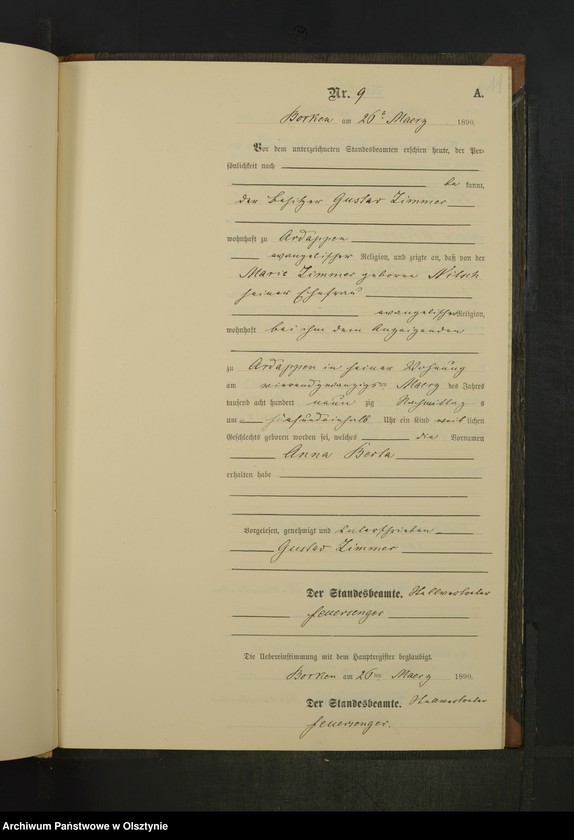 Nr. 9 A. 11
Borken am 26ᵗ Maerz 1890.
Vor dem unterzeichneten Standesbeamten erschien heute, der Per-
sönlichkeit nach
be kannt,
der Besitzer Gustav Zimmer
wohnhaft zu Ardappen
evangelischer Religion, und zeigte an, daß von der
Marie Zimmer geborene Nitsch
seiner Ehefrau
evangelischer Religion,
wohnhaft bei ihm dem Anzeigenden
zu Ardappen in seiner Wohnung
am vierundzwanzigsten Maerz des Jahres
tausend acht hundert neun zig Nachmittag s
um fünfundeinhalb Uhr ein Kind weib lichen
Geschlechts geboren worden sei, welches die Vornamen
Anna Berta
erhalten habe
Vorgelesen, genehmigt und unterschrieben
Gustav Zimmer
Der Standesbeamte.
Feuersenger
Die Uebereinstimmung mit dem Hauptregister beglaubigt.
Borken am 26ten Maerz 1890.
Der Standesbeamte.
Feuersenger.
Archiwum Państwowe w Olsztynie